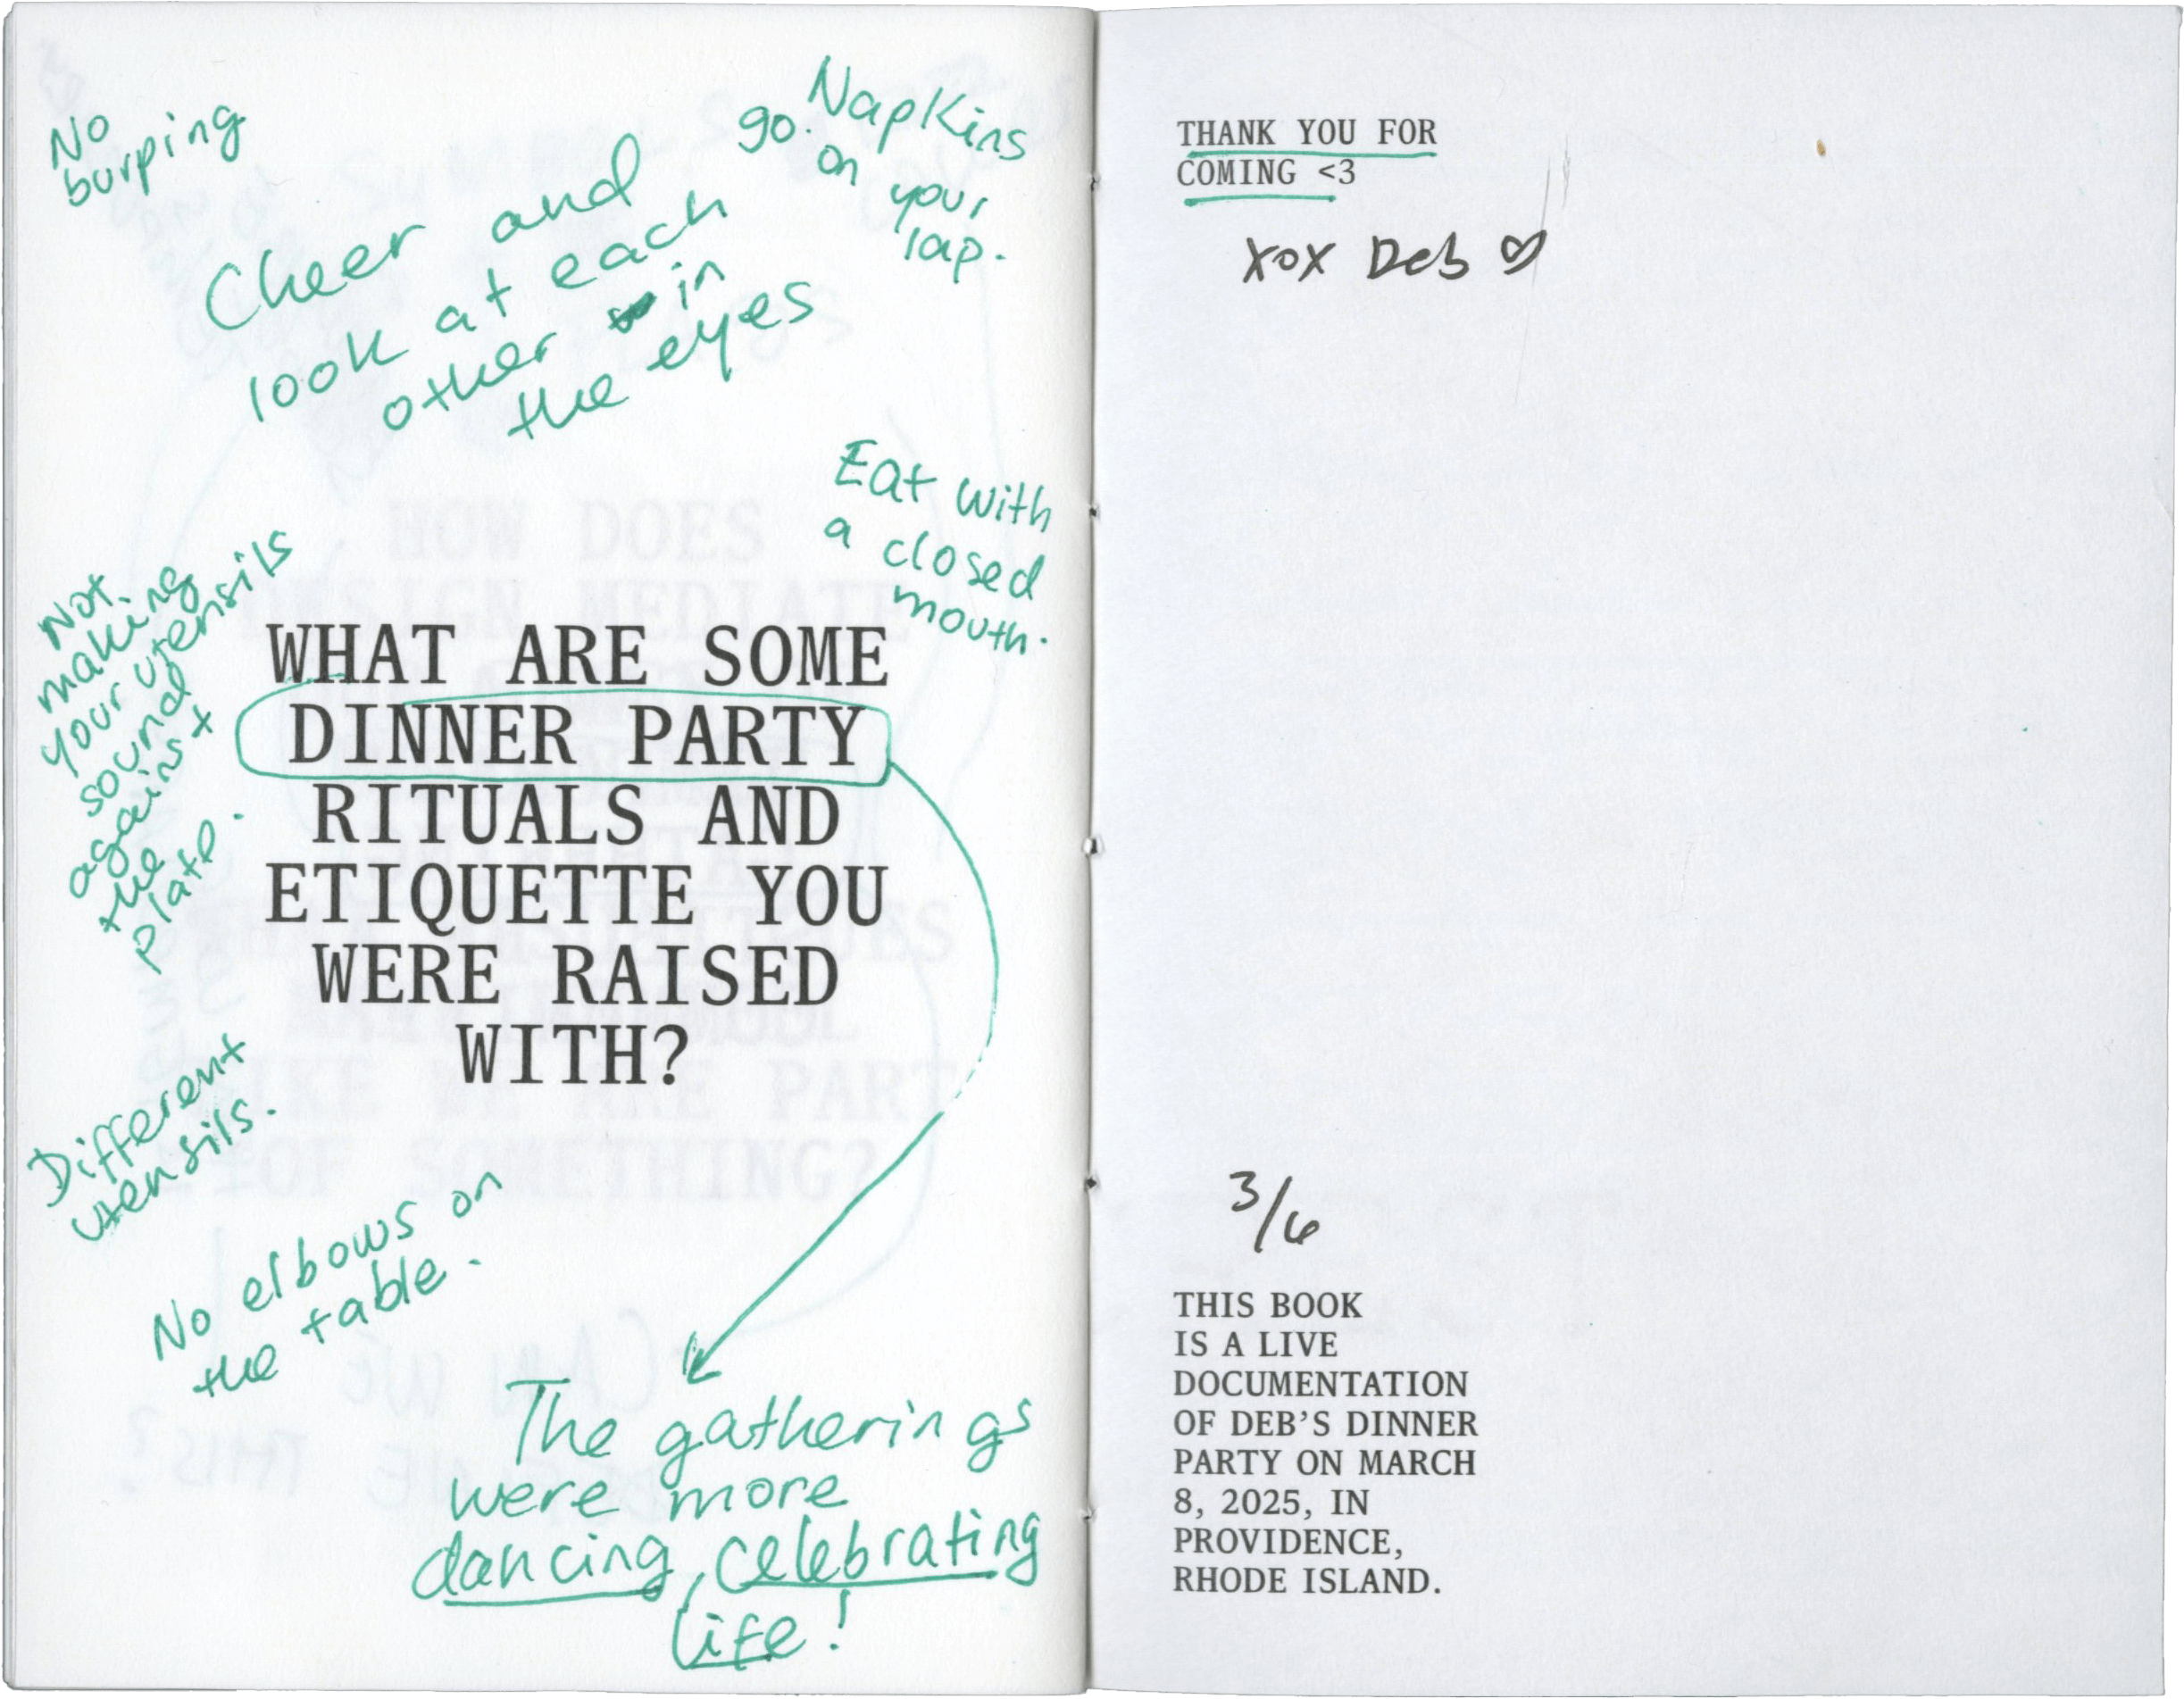 No
burping
Cheer and
look at each
other in
the eyes
go. Napkins
on
your
lap.
Eat with
a closed
mouth.
Not
making
your utensils
sound
against
the
plate.
WHAT ARE SOME
DINNER PARTY
RITUALS AND
ETIQUETTE YOU
WERE RAISED
WITH?
Different
utensils.
No elbows on
the table.
The gatherings
were more
dancing, celebrating
life!
THANK YOU FOR
COMING <3
xox Deb ♡
3/6
THIS BOOK
IS A LIVE
DOCUMENTATION
OF DEB'S DINNER
PARTY ON MARCH
8, 2025, IN
PROVIDENCE,
RHODE ISLAND.